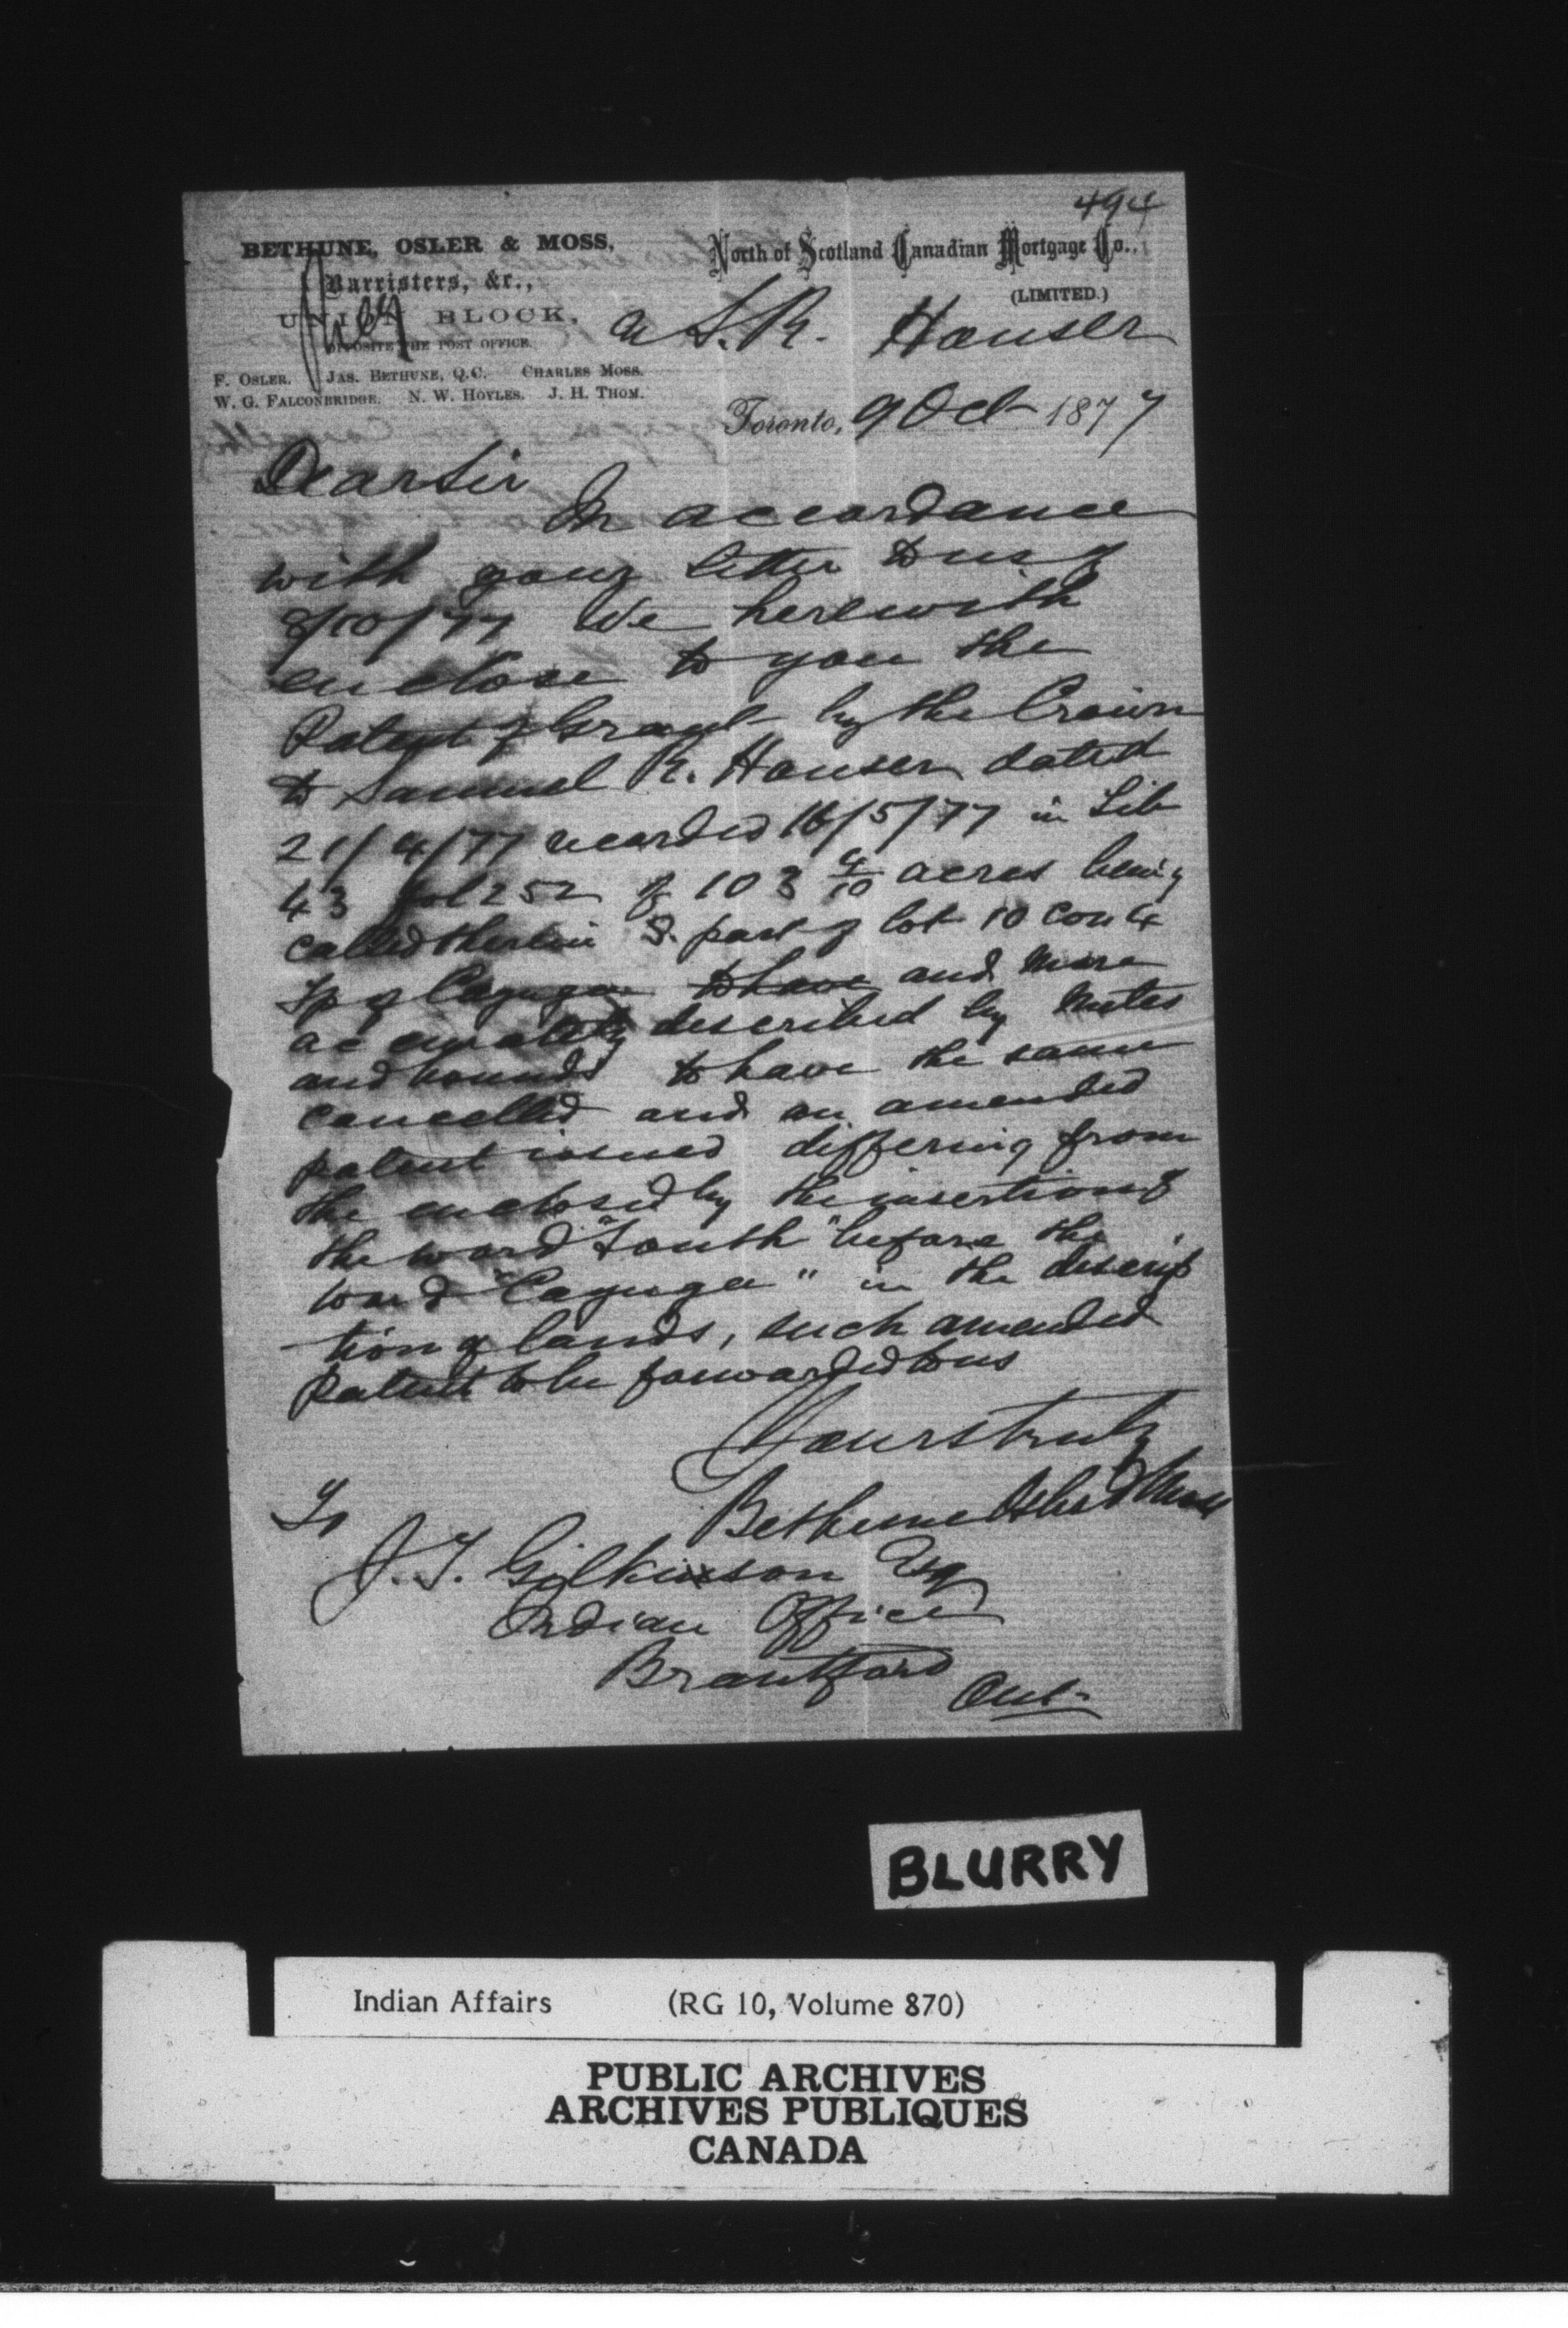 494
BETHUNE, OSLER & MOSS,
Barristers, &c.,
UNION BLOCK,
OPPOSITE THE POST OFFICE.
F. OSLER. JAS. BETHUNE, Q.C. CHARLES MOSS.
W. G. FALCONBRIDGE. N. W. HOYLES. J. H. THOM.
North of Scotland Canadian Mortgage Co.,
(LIMITED.)
S.R. Hauser
Toronto, 9 Oct 1877
Dear Sir
In accordance
with your letter to us of
8/10/77 We herewith
enclose to you the
Patent of Grant by the Crown
to Samuel R. Hauser dated
21/4/77 recorded 16/5/77 in Lib
43 fol 252 of 103 4/10 acres being
called therein S. part of lot 10 con 4
Tp of Cayuga to have and more
accurately described by metes
and bounds to have the same
cancelled and an amended
patent issued differing from
the enclosed by the insertion of
the word "South" before the
word "Cayuga" in the descrip
tion of lands, such amended
Patent to be forwarded to us
Yours truly
Bethune Osler & Moss
To
J.T. Gilkinson Esq
Indian Office
Brantford
Ont
BLURRY
Indian Affairs (RG 10, Volume 870)
PUBLIC ARCHIVES
ARCHIVES PUBLIQUES
CANADA